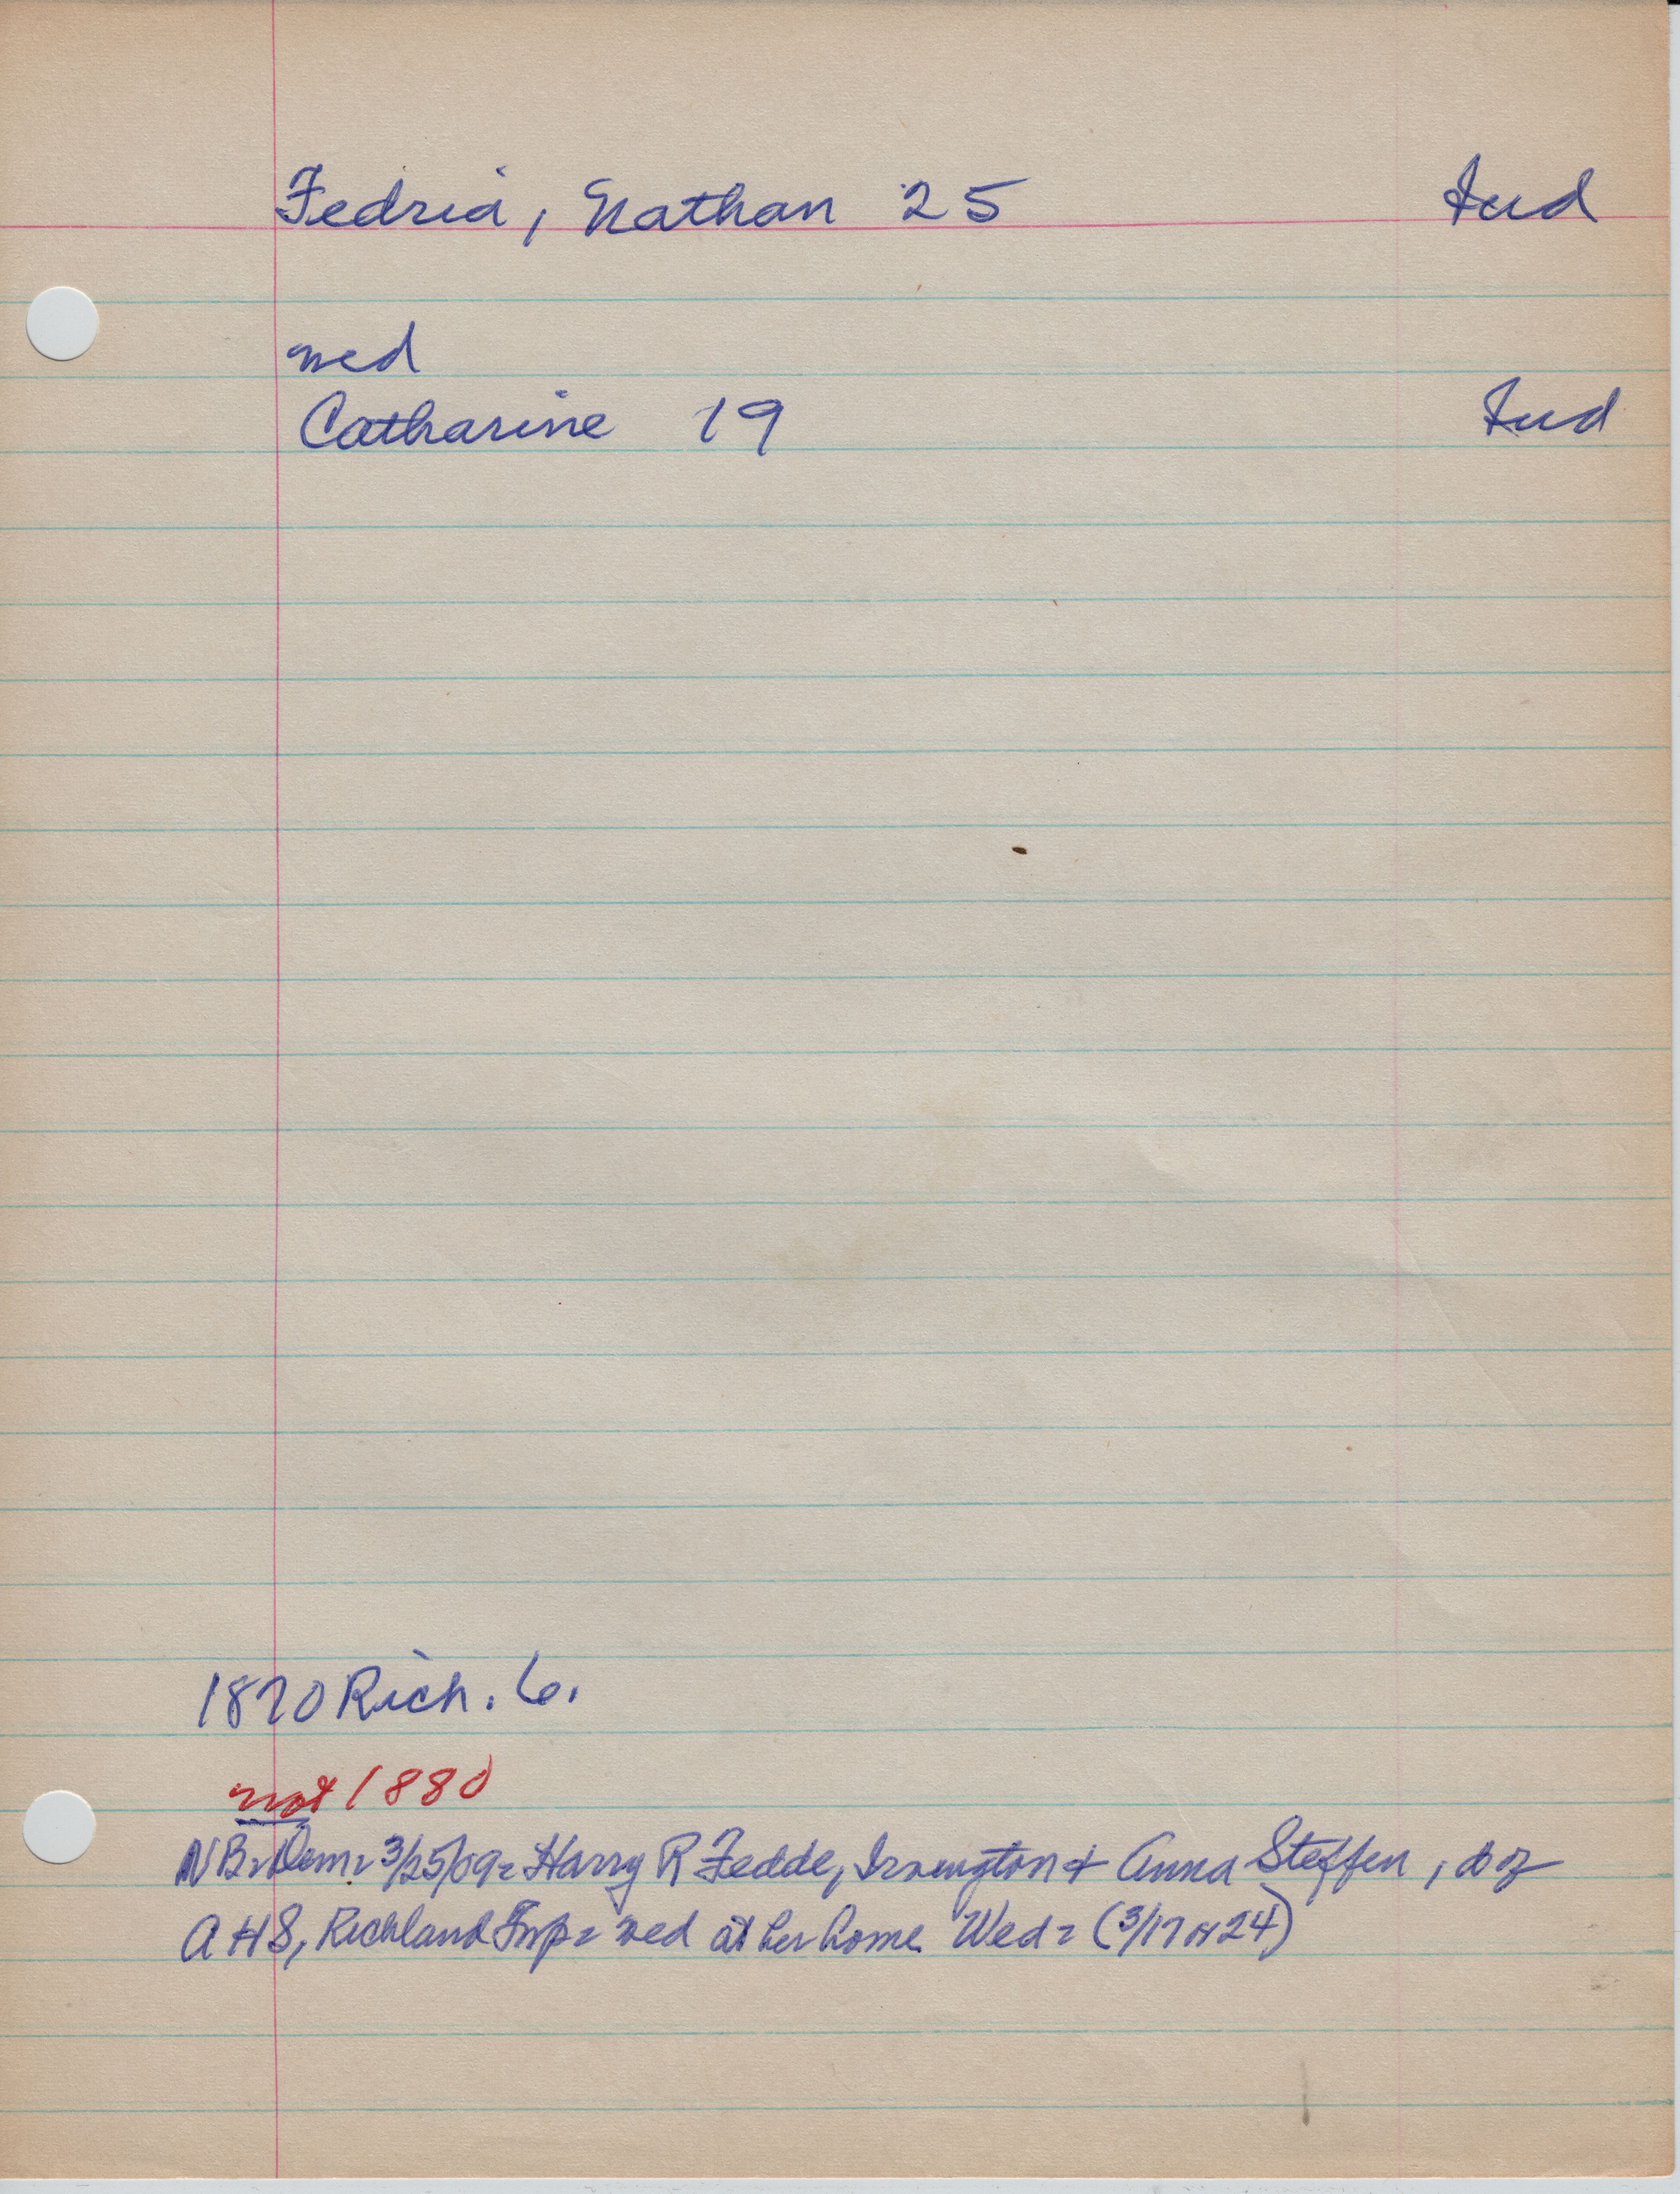 Fedria, Nathan 25 Ind
wed
Catharine 19 Ind
1870 Rich. 6.
not 1880
NB= Dem= 3/25/09= Harry R Fedde, Irvington & Anna Steffen, d of
A H S, Richland Twp= wed at her home Wed= (3/17 or 24)